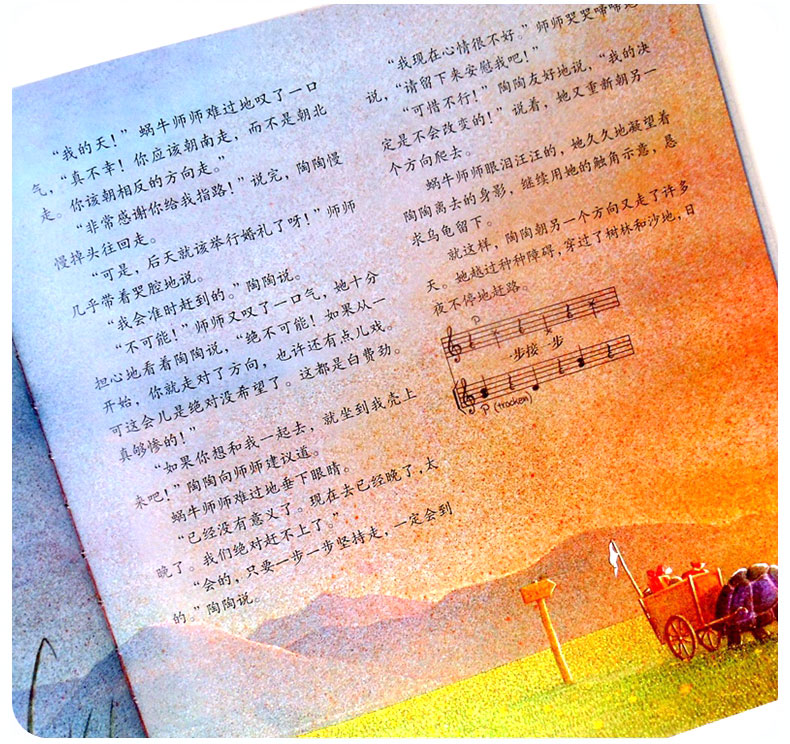 “我的天！”蜗牛师师难过地叹了一口
气，“真不幸！你应该朝南走，而不是朝北
走。你该朝相反的方向走。”
“非常感谢你给我指路！”说完，陶陶慢
慢掉头往回走。
“可是，后天就该举行婚礼了呀！”师师
几乎带着哭腔地说。
“我会准时赶到的。”陶陶说。
“不可能！”师师又叹了一口气，她十分
担心地看着陶陶说，“绝不可能！如果从一
开始，你就走对了方向，也许还有点儿戏。
可这会儿是绝对没希望了。这都是白费劲。
真够惨的！”
“如果你想和我一起去，就坐到我壳上
来吧！”陶陶向师师建议道。
蜗牛师师难过地垂下眼睛。
“已经没有意义了。现在去已经晚了，太
晚了。我们绝对赶不上了。”
“会的，只要一步一步坚持走，一定会到
的。”陶陶说。
“我现在心情很不好。”师师哭哭啼啼地
说，“请留下来安慰我吧！”
“可惜不行！”陶陶友好地说，“我的决
定是不会改变的！”说着，她又重新朝另一
个方向爬去。
蜗牛师师眼泪汪汪的，她久久地凝望着
陶陶离去的身影，继续用她的触角示意，恳
求乌龟留下。
就这样，陶陶朝另一个方向又走了许多
天。她越过种种障碍，穿过了树林和沙地，日
夜不停地赶路。
p
一步接一步
p (trocken)